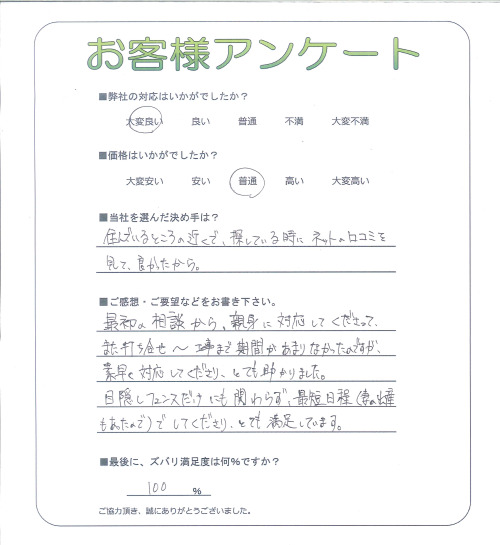 お客様アンケート
■弊社の対応はいかがでしたか?
大変良い 良い 普通 不満 大変不満
■価格はいかがでしたか?
大変安い 安い 普通 高い 大変高い
■当社を選んだ決め手は?
住んでいるところの近くで、探している時に ネットの口コミを
見て、良かたから。
■ご感想・ご要望などをお書き下さい。
最初の相談から、親身に対応してくださって、
また打ち合せ〜工事まで期間があまりなかったのですが、
素早く対応してくださり、とても助かりました。
目隠しフェンスだけにも関わらず、最短日程(妻の
もあったので)でしてくださり、とても満足しています。
■最後に、ズバリ満足度は何%ですか?
100 %
ご協力頂き、誠にありがとうございました。